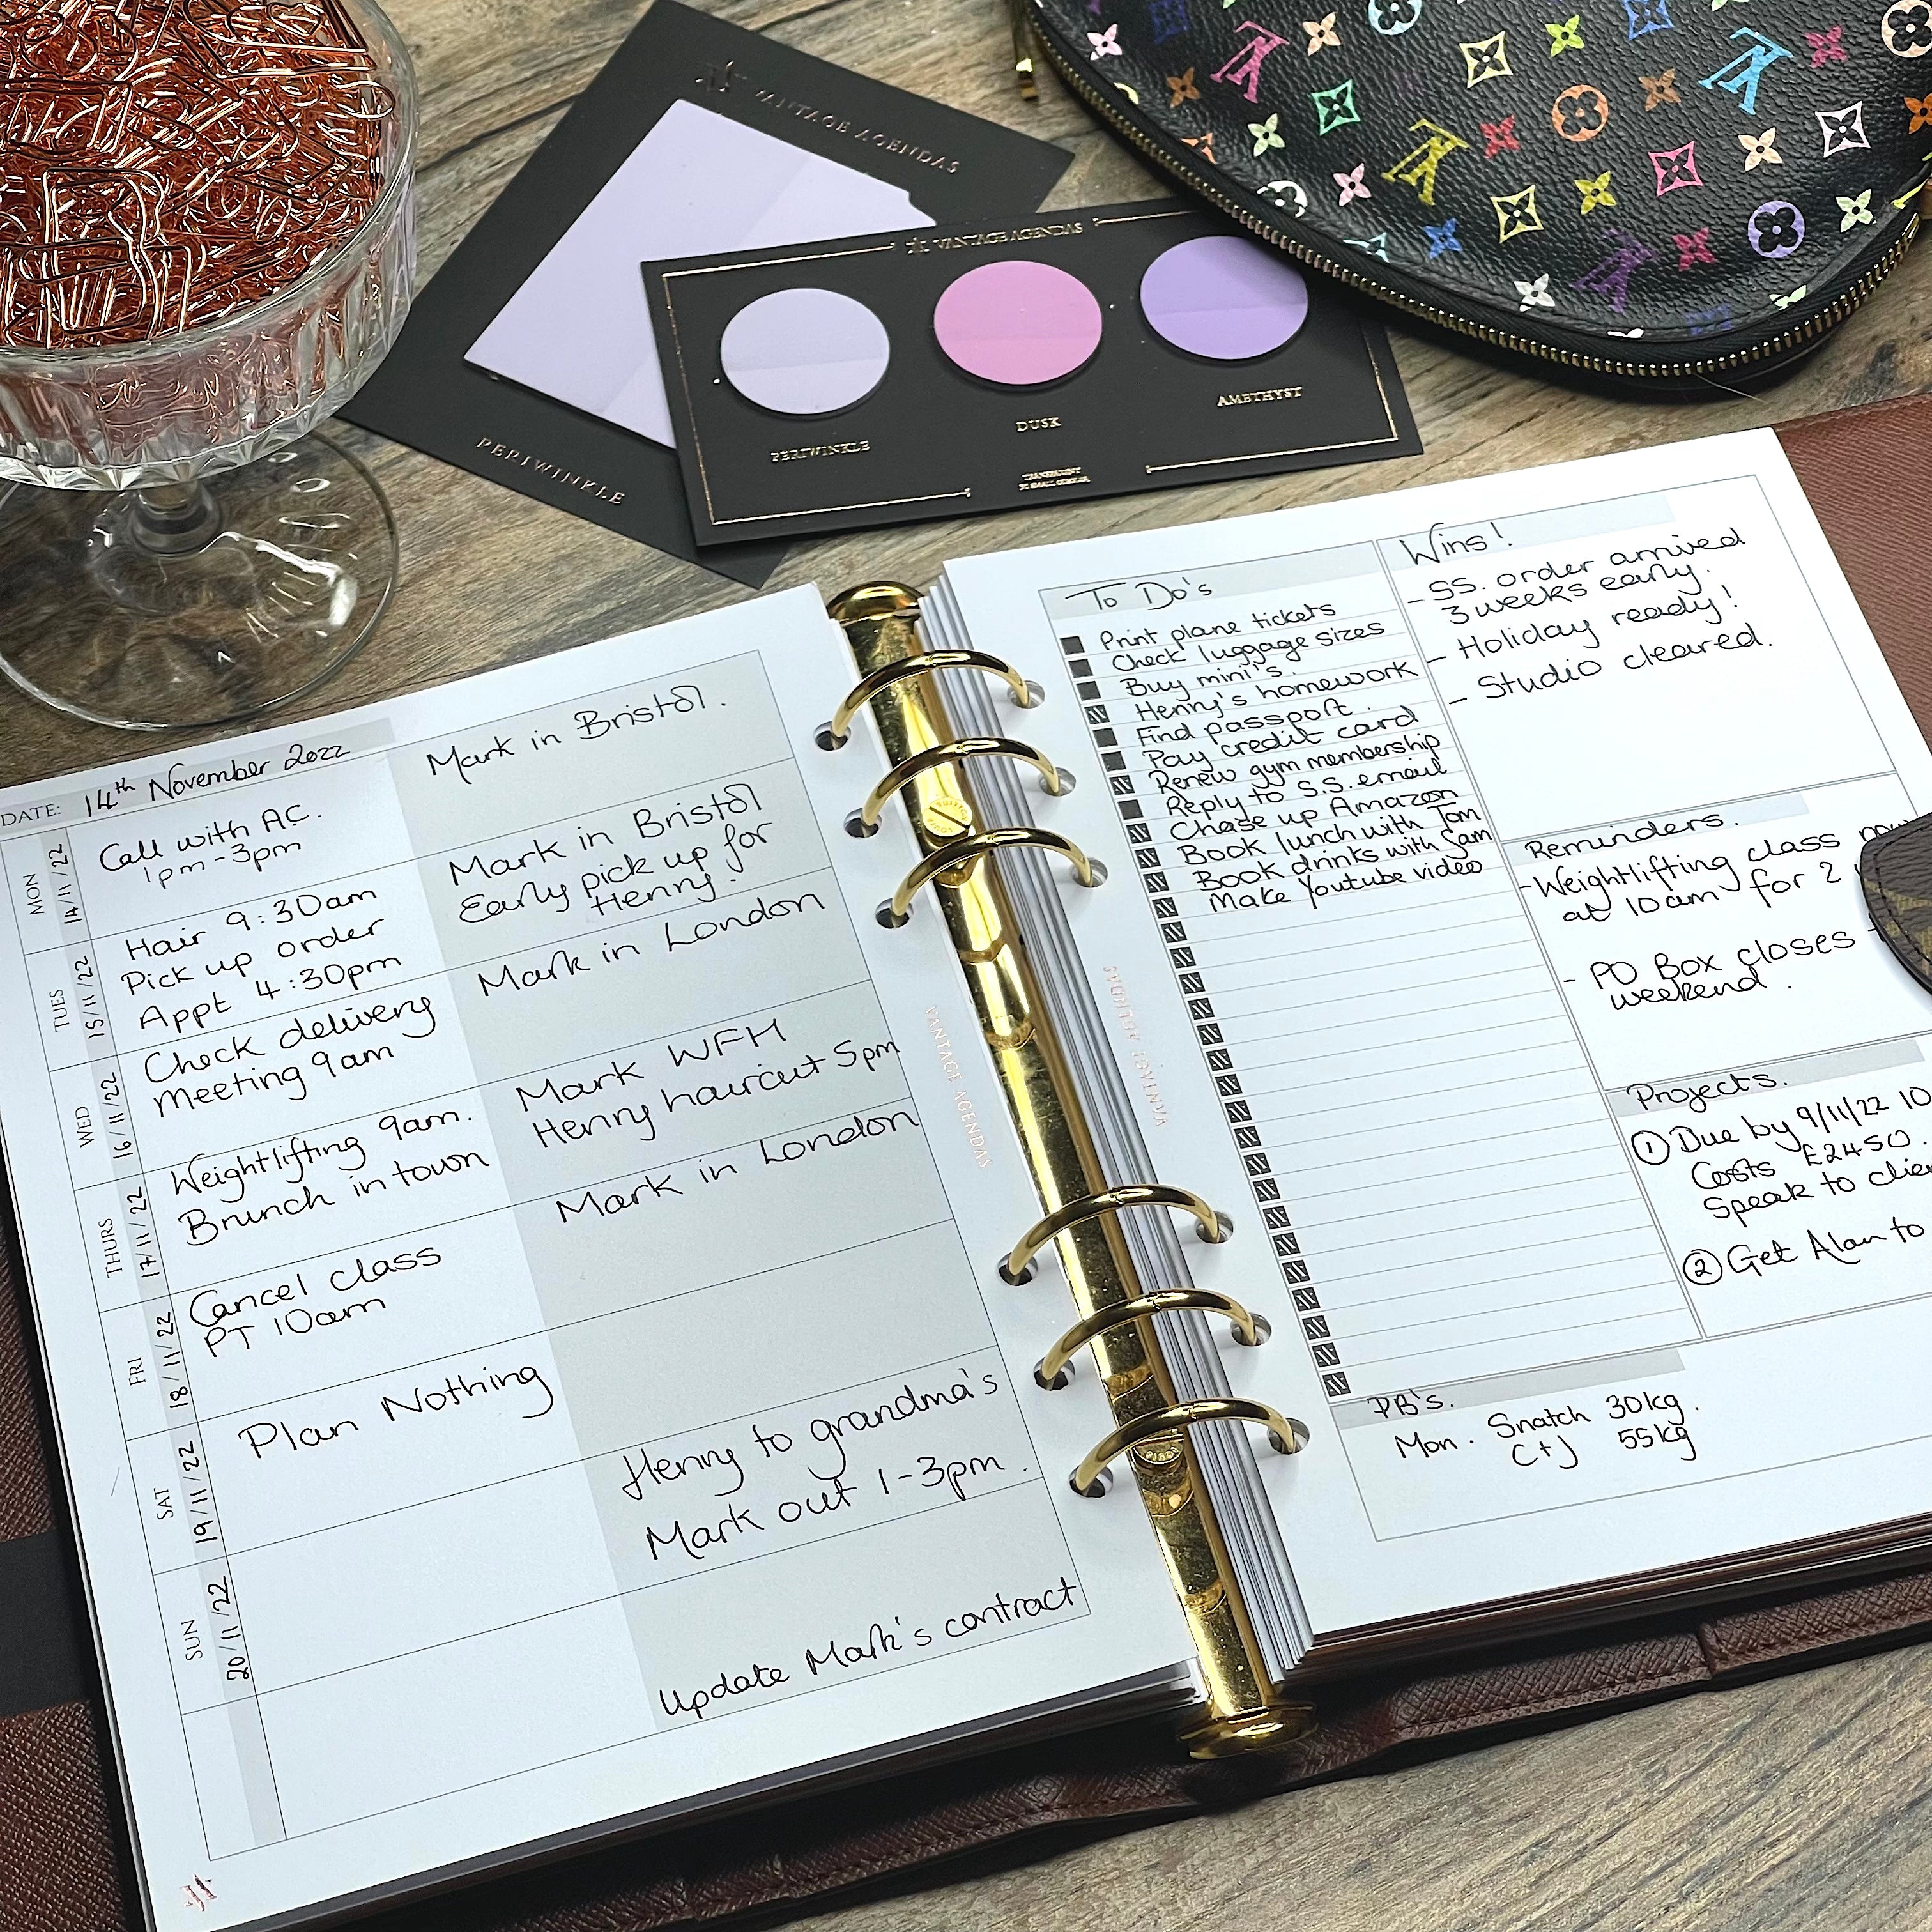 VANTAGE AGENDAS
PERIWINKLE
VANTAGE AGENDAS
PERIWINKLE
DUSK
AMETHYST
TRANSPARENT
DATE: 14th November 2022
MON
14/11/22
Call with AC.
1pm-3pm
Mark in Bristol.
TUES
15/11/22
Hair 9:30am
Pick up order
Appt 4:30pm
Mark in Bristol
Early pick up for
Henry.
WED
16/11/22
Check delivery
Meeting 9am
Mark in London
THURS
17/11/22
Weightlifting 9am.
Brunch in town
Mark WFH
Henry haircut 5pm
FRI
18/11/22
Cancel class
PT 10am
Mark in London
SAT
19/11/22
Plan Nothing
SUN
20/11/22
Henry to grandma's
Mark out 1-3pm.
Update Mark's contract
VANTAGE AGENDAS
VANTAGE AGENDAS
To Do's
Print plane tickets
Check luggage sizes
Buy mini's.
Henry's homework
Find passport.
Pay credit card
Renew gym membership
Reply to S.S. email
Chase up Amazon
Book lunch with Tom
Book drinks with Sam
Make Youtube video
Wins!
- SS. order arrived
3 weeks early.
- Holiday ready!
- Studio cleared.
Reminders.
- Weightlifting class
at 10am for 2
- PO Box closes
weekend.
Projects.
① Due by 9/11/22 10
Costs £2450.
Speak to
② Get Alan to
PB's.
Mon. Snatch 30kg.
C+J 55kg